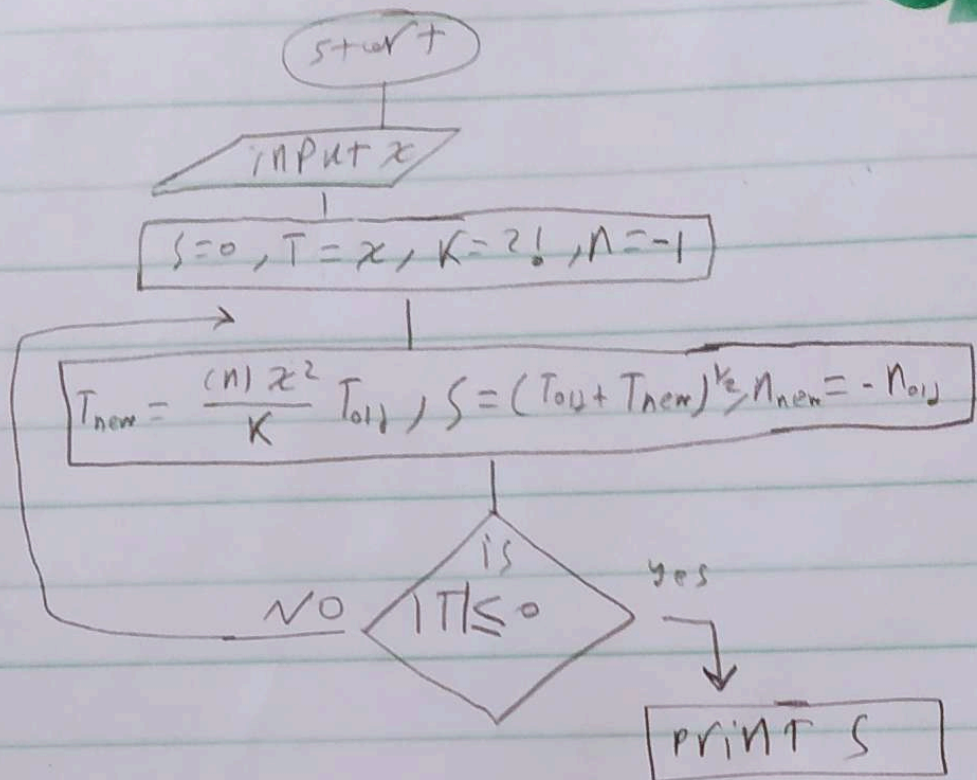 start
input x
S=0, T=x, K=2!, n=-1
T_new = (n) x² / K T_old, S=(T_old + T_new)^½, n_new = -n_old
is
|T|≤0
yes
NO
print S